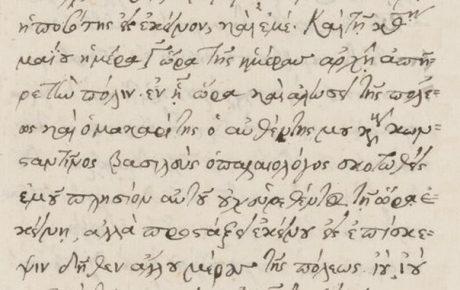 ἡ ποιότης εἰς ἐκεῖνον, καὶ ἐμέ. Καὶ τῇ κθῃ
μαΐου ἡμέρα Γ ὥρα τῆς ἡμέρας ἀρχῇ ἀπῆ-
ρε τὴν πόλιν. ἐν ᾗ ὥρα καὶ ἁλώσει τῆς πόλε-
ως καὶ ὁ μακαρίτης ὁ αὐθέντης μου κὺρ κων-
σταντῖνος βασιλεὺς ὁ παλαιολόγος σκοτωθεὶς
ἐμοῦ πλησίον αὐτοῦ οὐχ εὑρεθέντος τῇ ὥρα ἐ-
κείνῃ, ἀλλὰ προστάξει ἐκείνου εἰς ἐπίσκε-
ψιν δῆθεν ἄλλου μέρους τῆς πόλεως. ἰοὺ ἰοὺ